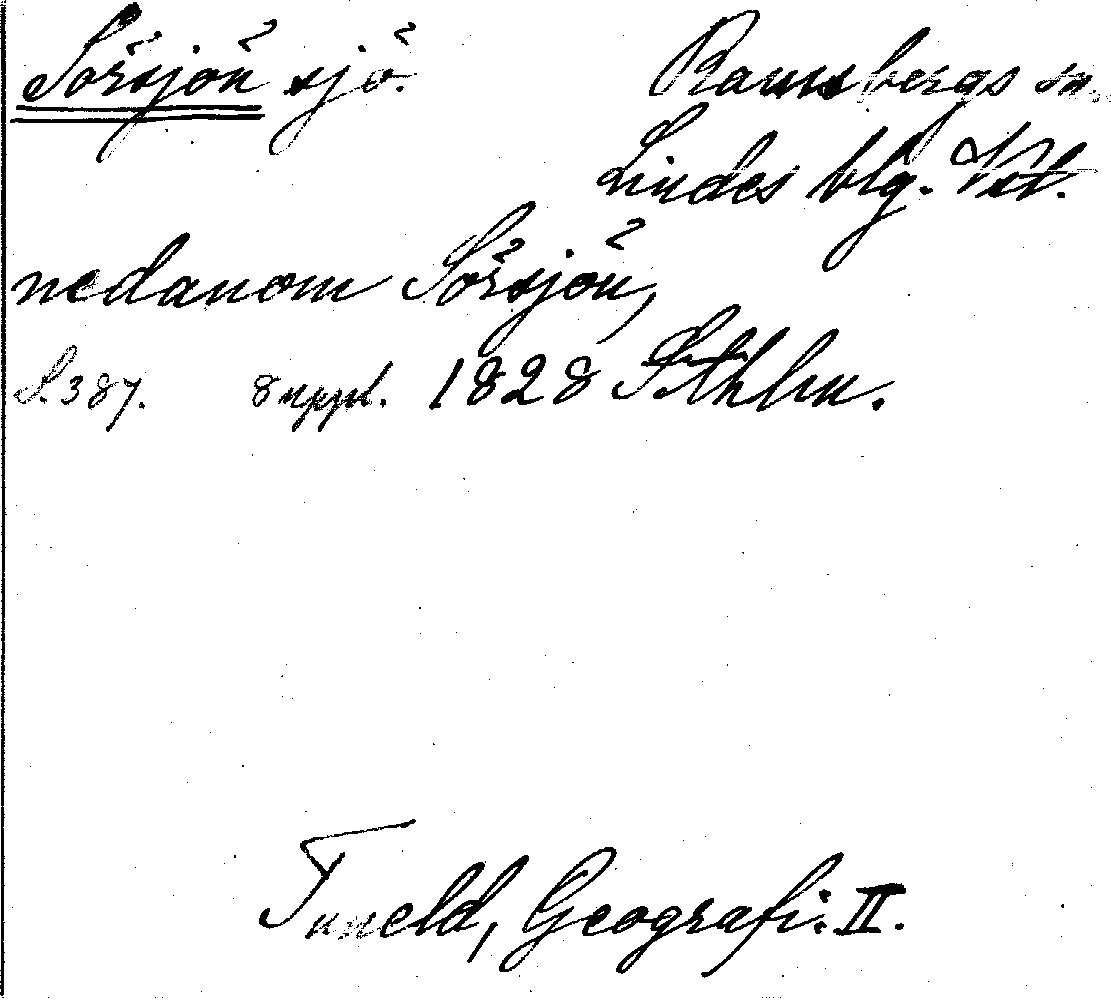 Sörsjön sjö. Ramsbergs sn.
Lindes blg. Vstl.
nedanom Sörsjön,
S. 387. 8 uppl. 1828 Sthlm.
Tuneld, Geografi. II.